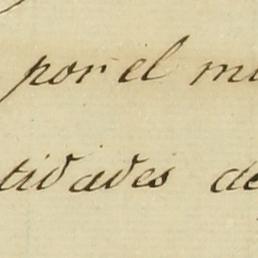 por el mi
tidades de